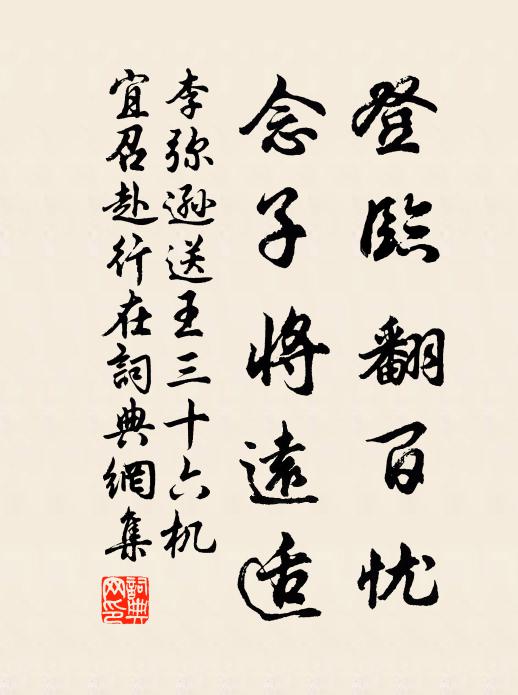 登臨翻百忧
念子將遠适
李弥遜送王三十六机
宜召赴行在詞典網集
詞典網印